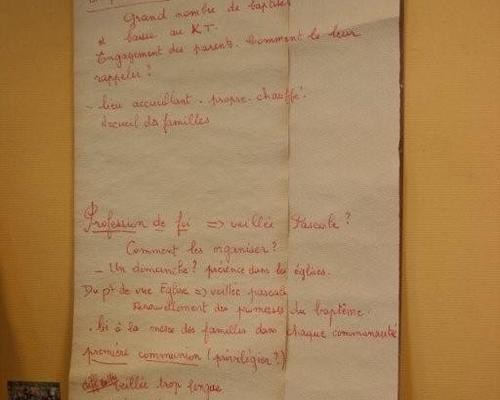 Grand nombre de baptisés
baisse au KT.
Engagement des parents. Comment le leur
rappeler?
- lieu accueillant. propre. chauffé.
Accueil des familles
Profession de foi => veillée Pascale?
Comment les organiser?
- Un dimanche? présence dans les églises.
Du pt de vue Eglise => veillée pascale
Renouvellement des promesses du baptême.
à la messe des familles dans chaque communauté
première communion (privilégier?)
veillée trop longue